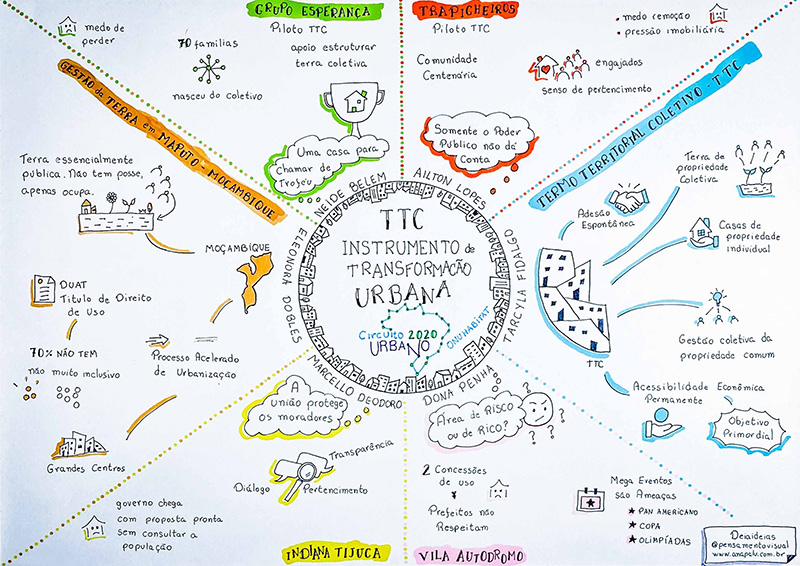 GRUPO ESPERANÇA
Piloto TTC
apoio estruturar
terra coletiva
medo de
perder
70 famílias
nasceu do coletivo
Uma casa para
Chamar de
Troféu
NEIDE BELEM
TRAPICHEIROS
Piloto TTC
Comunidade
Centenária
medo remoção
pressão imobiliária
engajados
senso de pertencimento
Somente o Poder
Público não dá
Conta
AILTON LOPES
GESTÃO da TERRA em MAPUTO - MOÇAMBIQUE
Terra essencialmente
pública. Não tem posse,
apenas ocupa.
MOÇAMBIQUE
DUAT
Título de Direito
de Uso
70% NÃO TEM
não muito inclusivo
Processo Acelerado
de Urbanização
Grandes Centros
ELEONORA DOBLES
TTC
INSTRUMENTO de
TRANSFORMAÇÃO
URBANA
Circuito 2020
URBANO
ONU HABITAT
TERMO TERRITORIAL COLETIVO - TTC
Adesão
Espontânea
Terra de
propriedade
Coletiva
Casas de
propriedade
individual
Gestão coletiva da
propriedade comum
TTC
Acessibilidade Econômica
Permanente
Objetivo
Primordial
TARCYLA FIDALGO
MARCELLO DEODORO
A
união protege
os moradores
Transparência
Diálogo
Pertencimento
governo chega
com proposta pronta
sem consultar a
população
INDIANA TIJUCA
DONA PENHA
Área de RISCO
ou de RICO?
? ? ? ?
2 Concessões
de uso
Prefeitos não
Respeitam
Mega Eventos
são Ameaças
PAN AMERICANO
COPA
OLIMPÍADAS
VILA AUTODROMO
Deiaideias
@pensamentovisual
www.anapalu.com.br